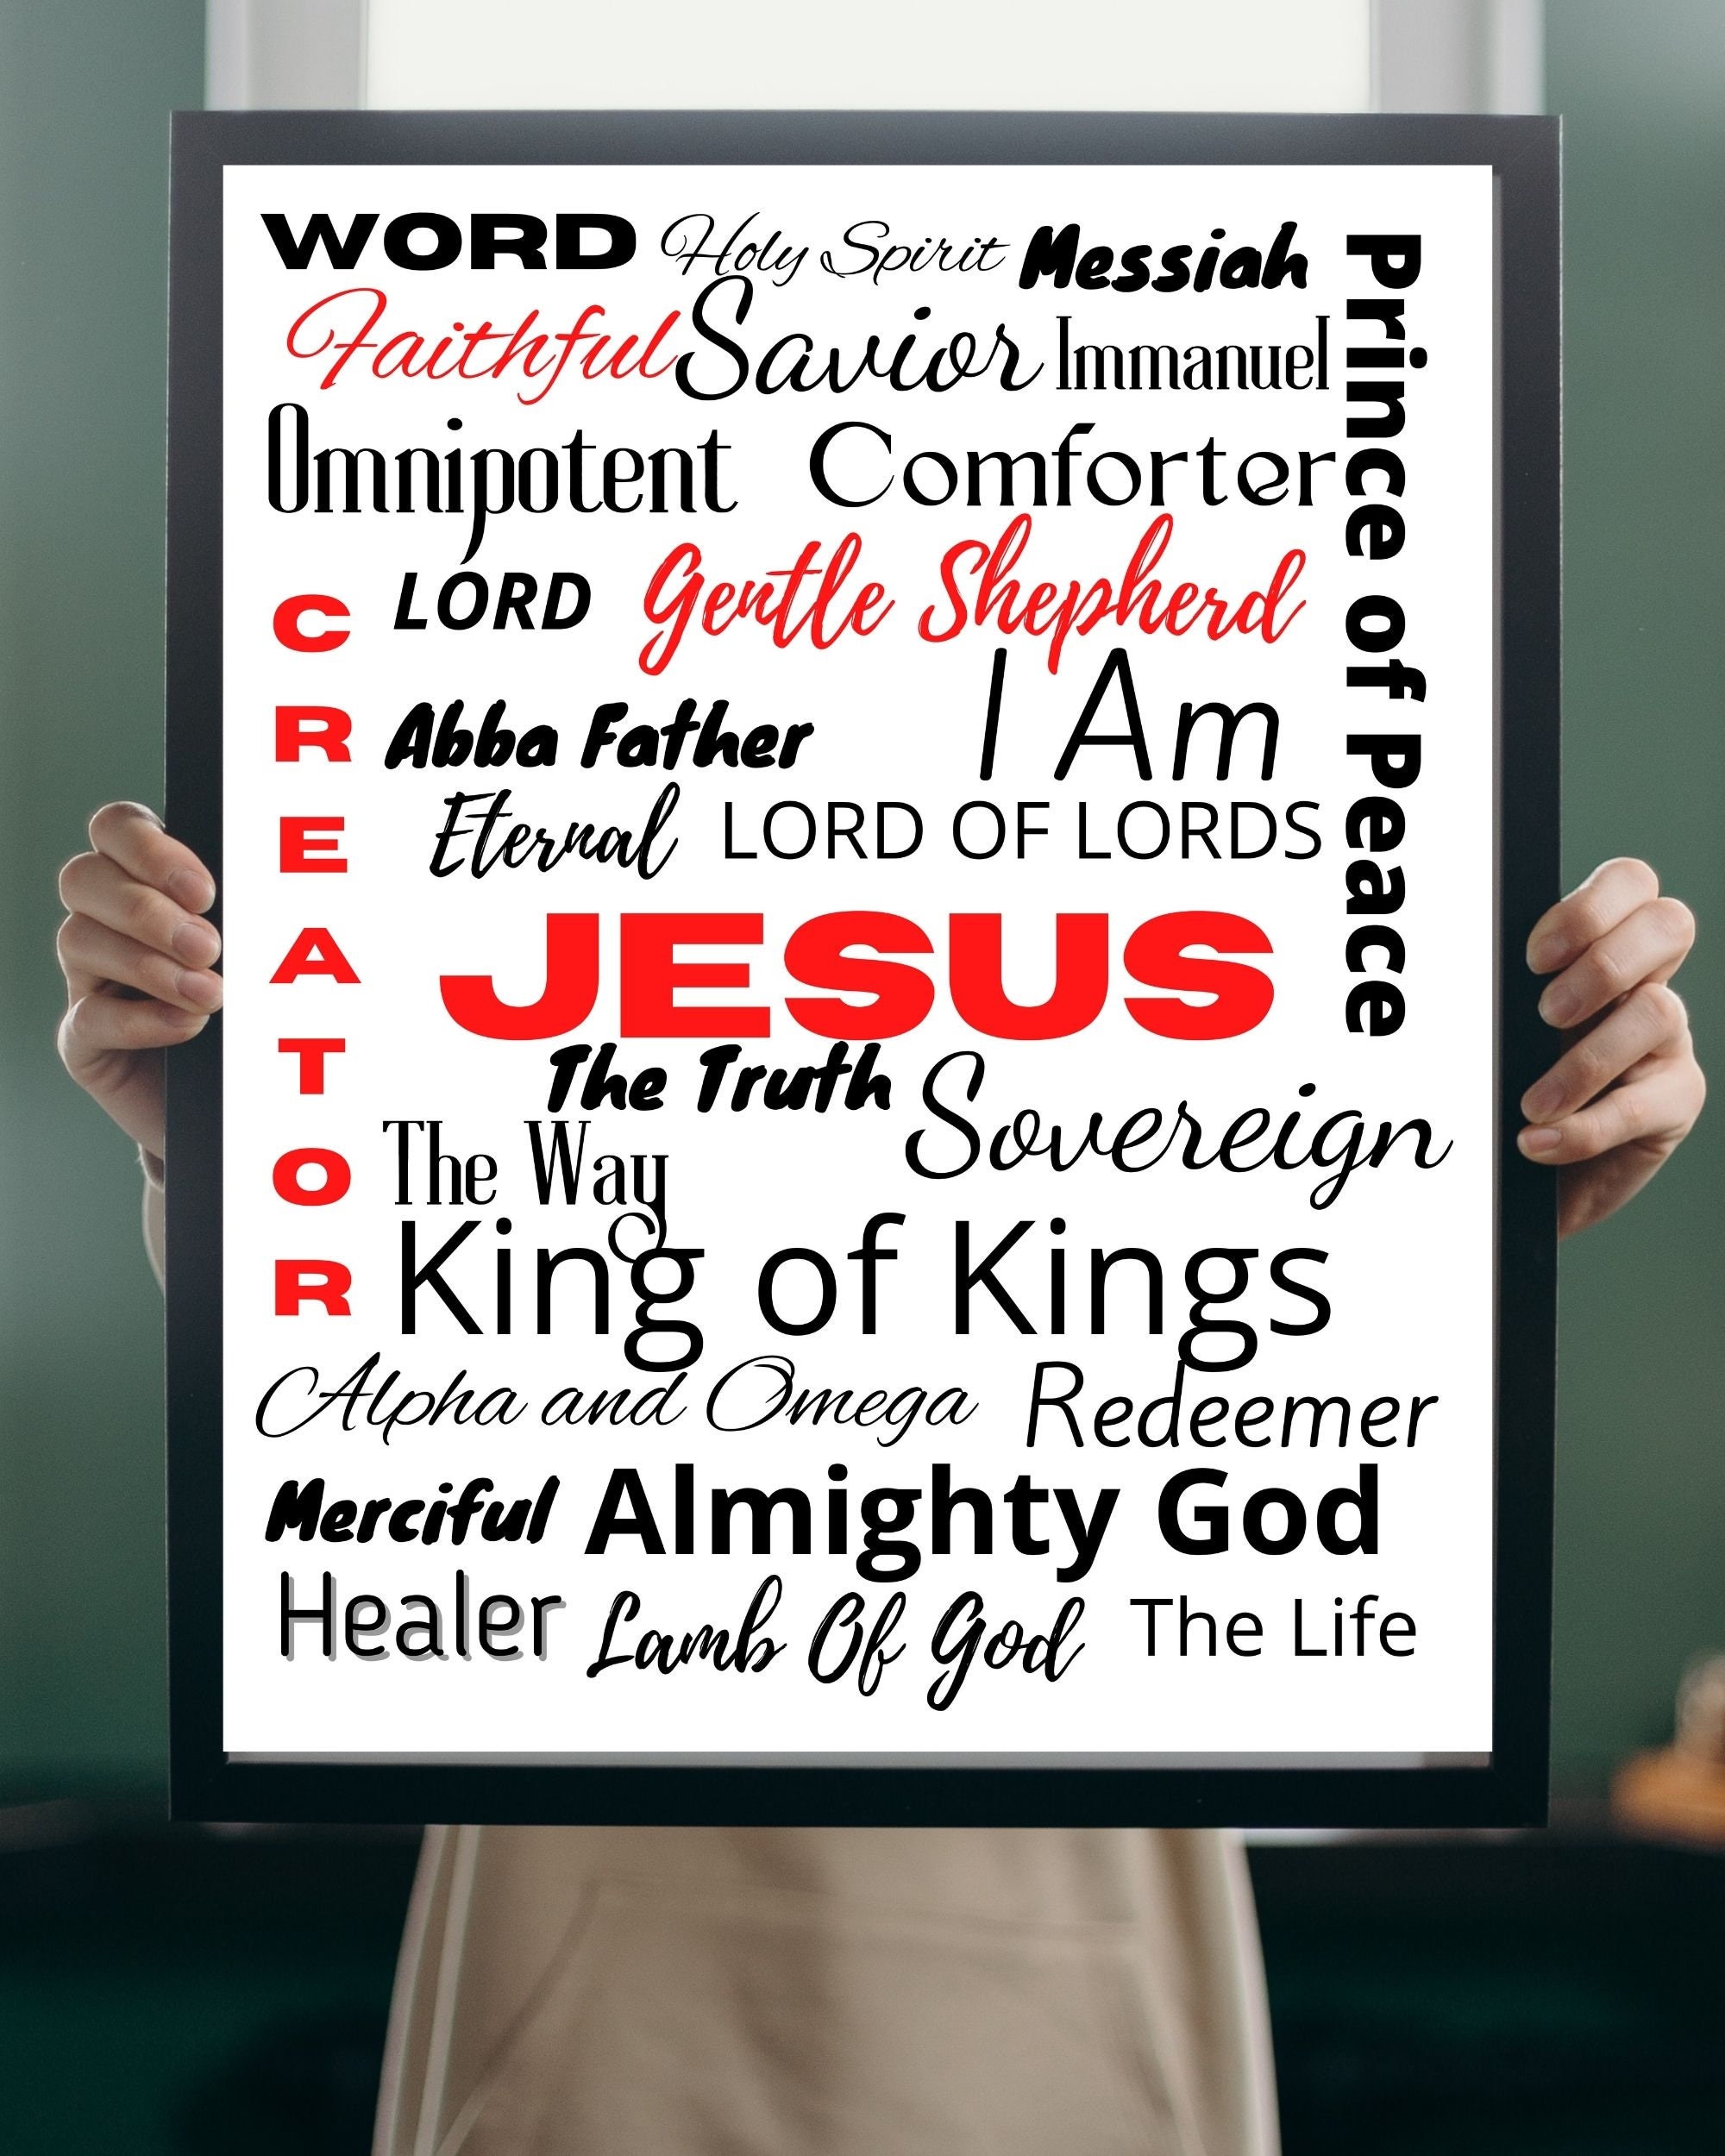 WORD Holy Spirit Messiah
Prince of Peace
Faithful Savior Immanuel
Omnipotent Comforter
CREATOR
LORD Gentle Shepherd
Abba Father I Am
Eternal LORD OF LORDS
JESUS
The Truth Sovereign
The Way
King of Kings
Alpha and Omega Redeemer
Merciful Almighty God
Healer Lamb Of God The Life